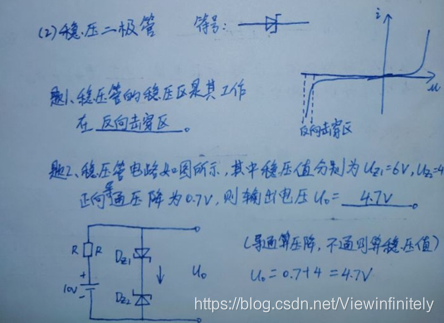 (2) 稳压二极管 符号:
i
u
反向击穿区
题1、稳压管的稳压区是其工作
在 反向击穿区 。
题2、稳压管电路如图所示,其中稳压值分别为UZ1=6V,UZ2=4
正向导通压降为0.7V,则输出电压U0= 4.7V
R R
+
10V
-
DZ1
DZ2
U0
(导通算压降,不通则算稳压值)
U0=0.7+4=4.7V
https://blog.csdn.net/Viewinfinitely